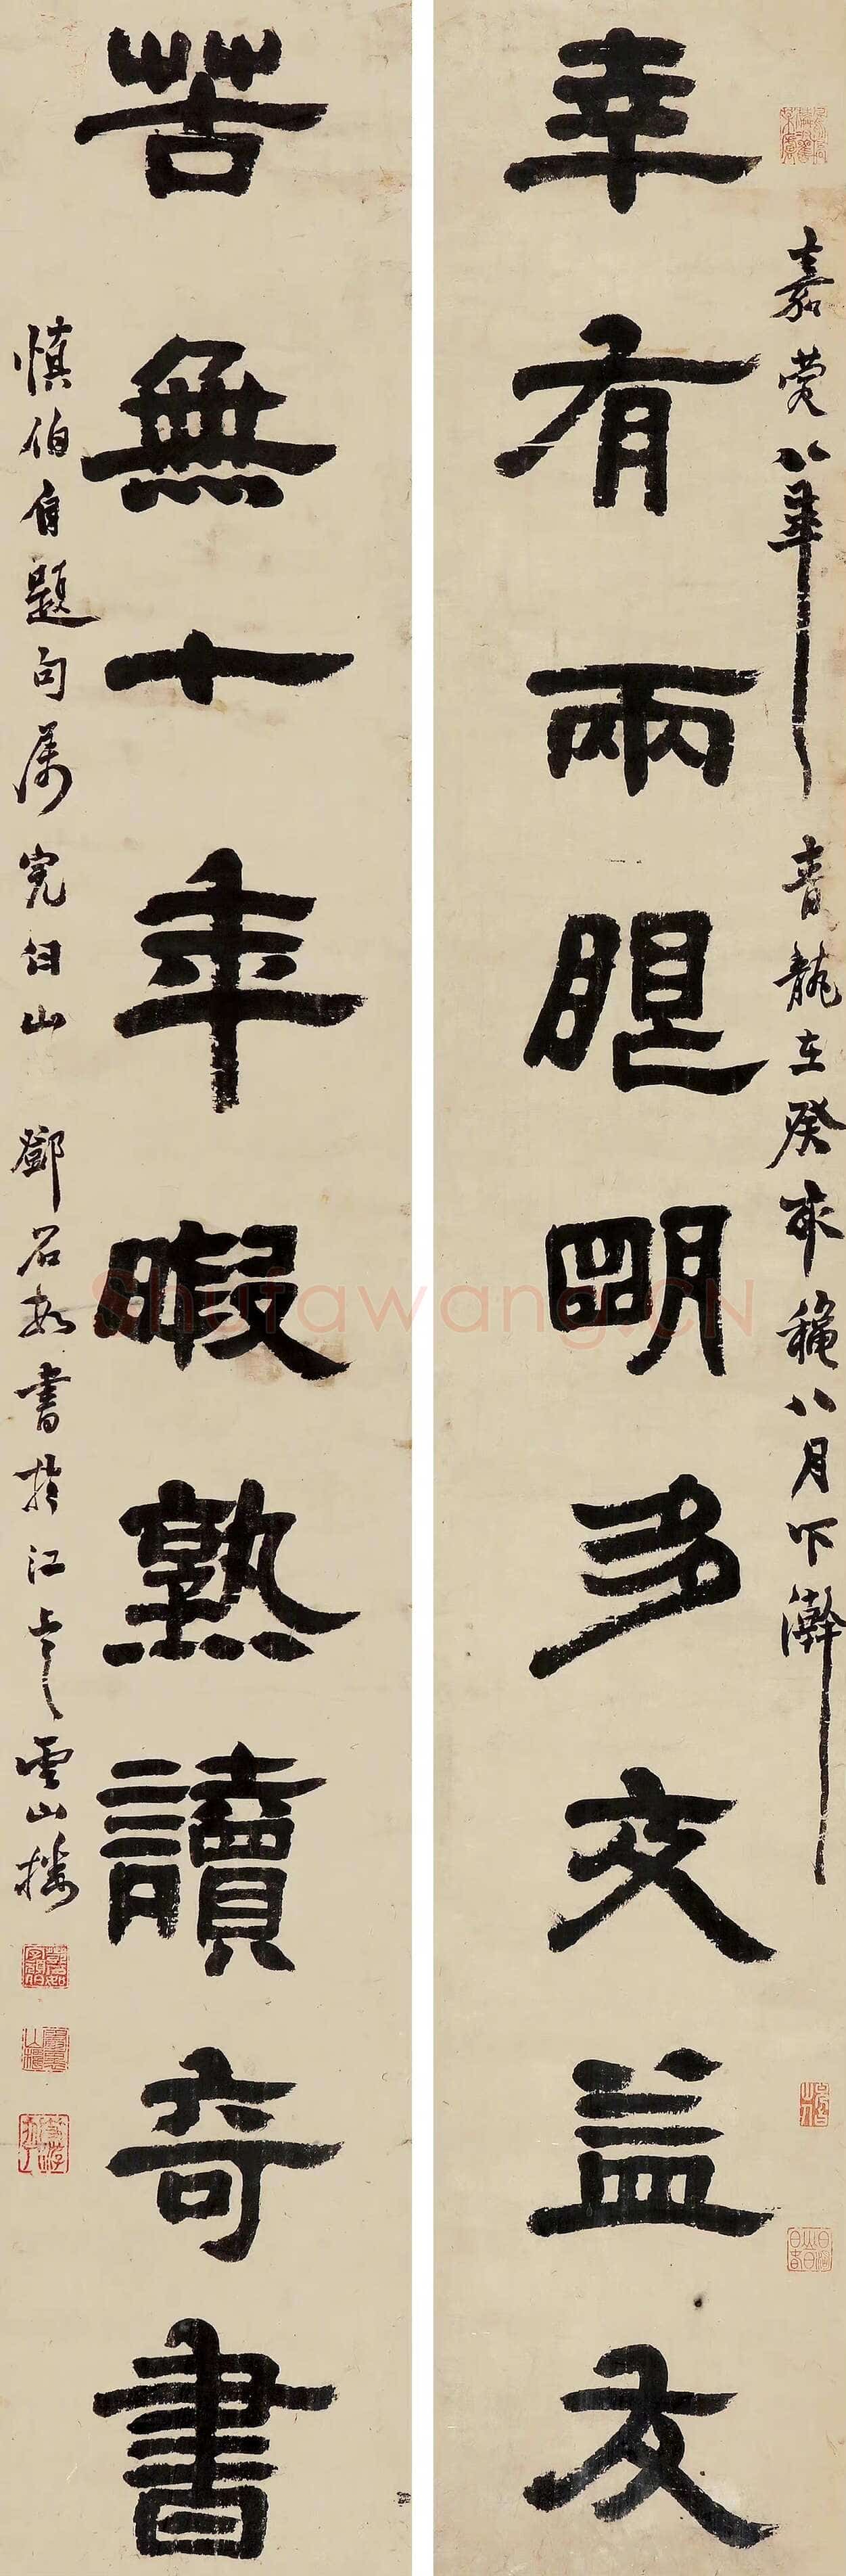 嘉慶八年青龍在癸亥穐八月下澣
幸有兩眼明多交益友
苦無十年暇熟讀奇書
慎伯自題句属完白山鄧石如書於江上之雲山樓
Shufawang.CN